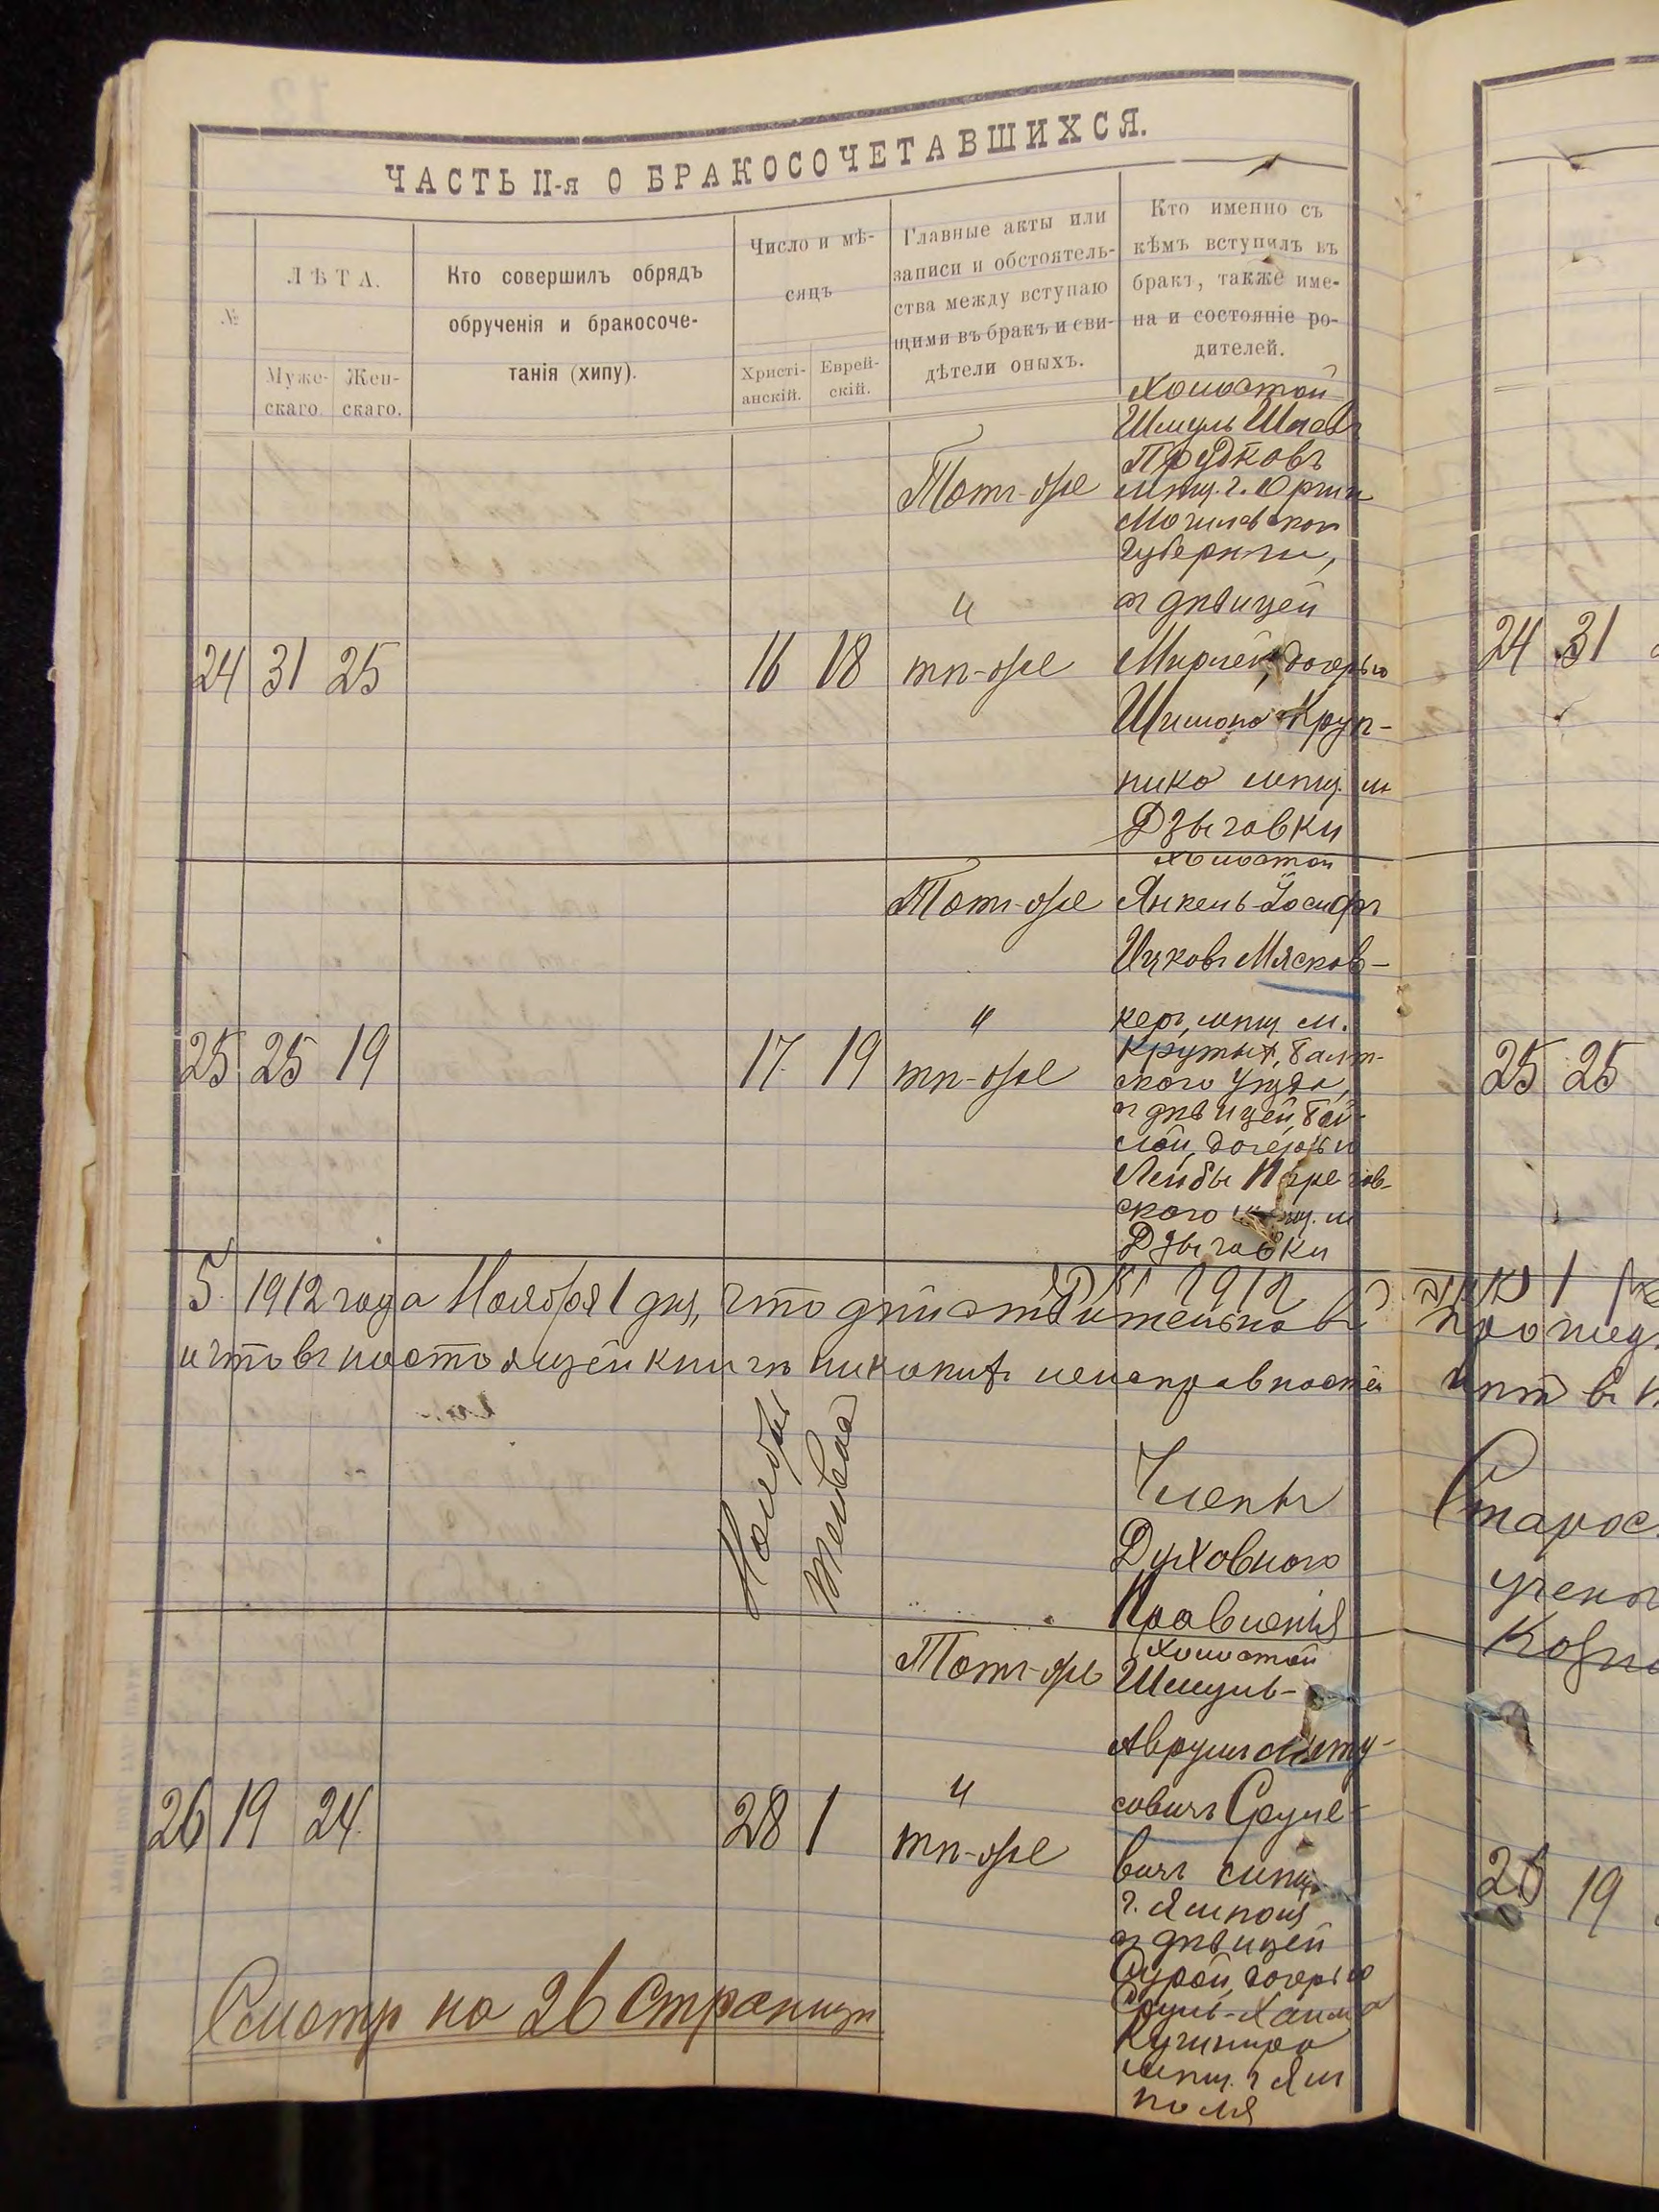 ЧАСТЬ II-я О БРАКОСОЧЕТАВШИХСЯ.
№
ЛѢТА.
Муже-
скаго.
Жен-
скаго.
Кто совершилъ обрядъ
обрученія и бракосоче-
танія (хипу).
Число и мѣ-
сяцъ
Христі-
анскій.
Еврей-
скій.
Главные акты или
записи и обстоятель-
ства между вступаю
щими въ бракъ и сви-
дѣтели оныхъ.
Кто именно съ
кѣмъ вступилъ въ
бракъ, также име-
на и состояніе ро-
дителей.
24 31 25 16 18
Тотъ-же
"
тѣ-же
Холостой
Шмуль
Прудковъ
мѣщ. г. Орши
Могилевской
губерніи,
съ дѣвицей
Мирлей, дочерью
Шимона Круп-
ника мѣщ. м
Дзыговки
24 31
25 25 19 17 19
Тотъ-же
"
тѣ-же
холостой
Янкель-Іосифъ
Ицковъ Мясков-
керъ, мѣщ. м.
Крутыхъ, Балт-
ского уѣзда,
съ дѣвицей Бей-
лой, дочерью
Лейбы
ского мѣщ. м
Дзыговки
25 25
1912 года Ноября 1 дня, что дѣйствительно въ
и что въ настоящей книгѣ никакихъ неисправностей
нѣтъ въ
Ноябрь
Члены
Духовного
Правленія
Старос
учены
26 19 24 28 1
Тотъ-же
"
тѣ-же
холостой
Шмуль-
Аврумъ Мату-
совичъ Сруле-
вичъ
г. Ямполя
съ дѣвицей
Сурой, дочерью
Сруль-Хаима
Кушнира
мѣщ. г Ям
поля
26 19
Смотр на 26 страницѣ